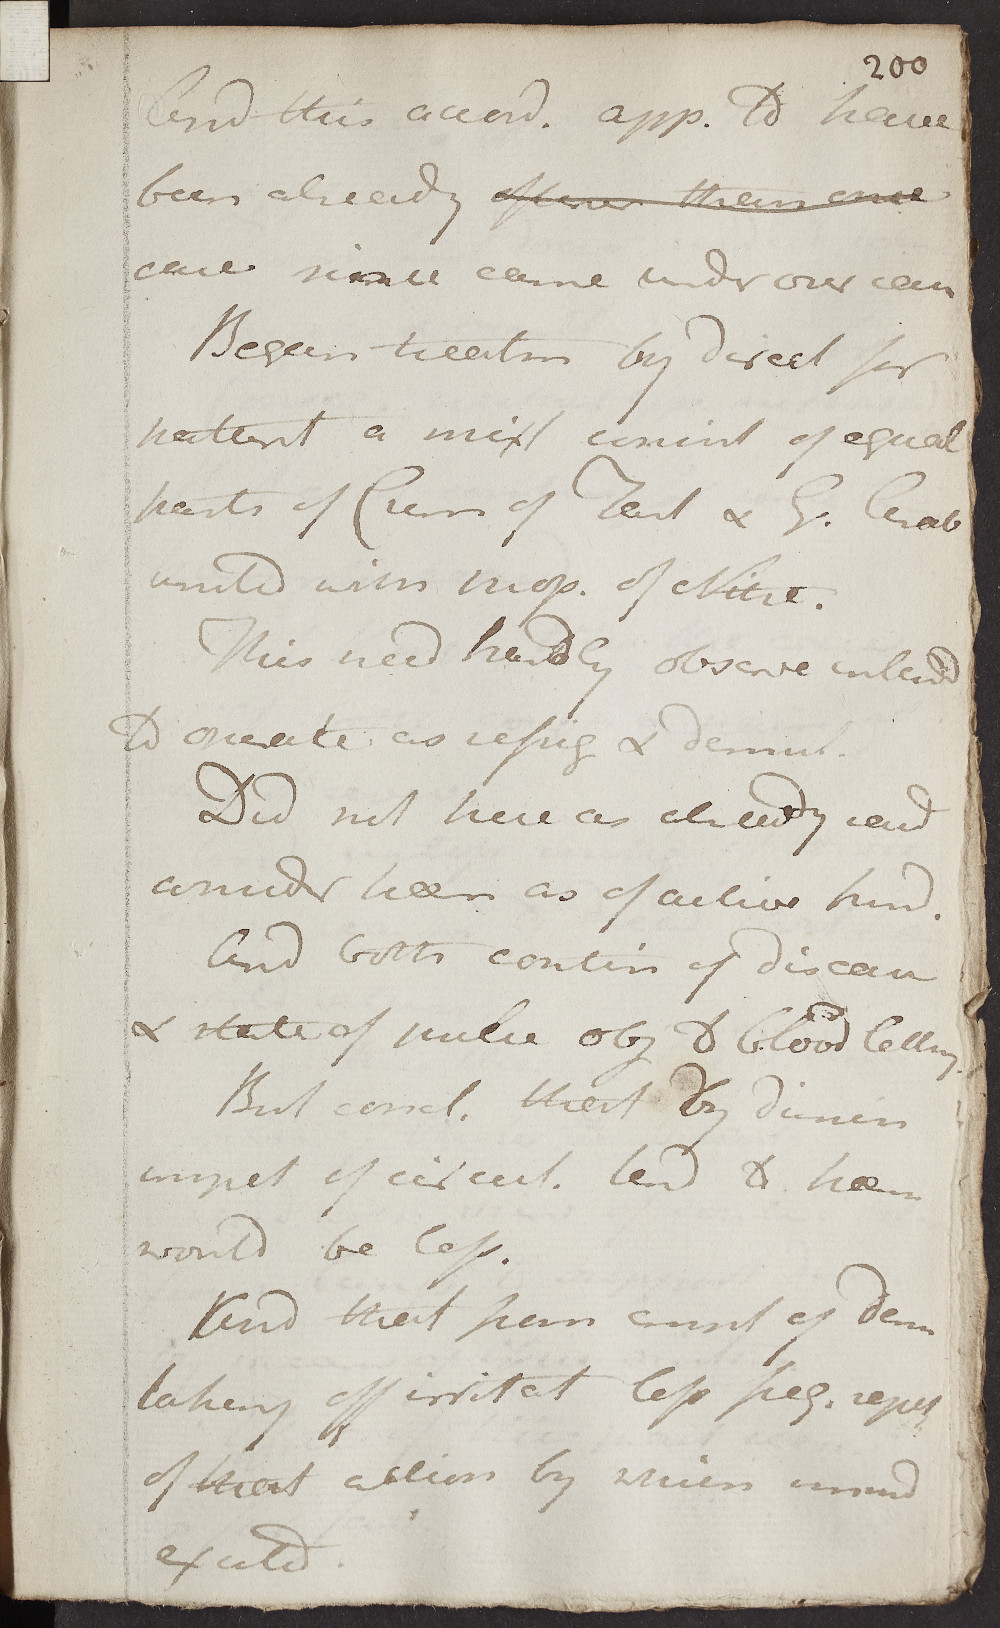 200
And this accord. app. to have
been already often than once
case since came under our care
Began treatm by direct for
patient a mixt consist of equal
parts of Crem of Tart & G. Arab
united with prop. of Nitre.
This need hardly observe intend
to operate as refrig & demul.
Did not here as already said
consider hæm as of active kind.
And both contin of disease
& state of pulse obj to blood letting.
But concl. that by dimin
impet of circul. tend to hæm
would be less.
And that from emynt of dem
taking off irritat less freq. repet
of that action by which
excited.